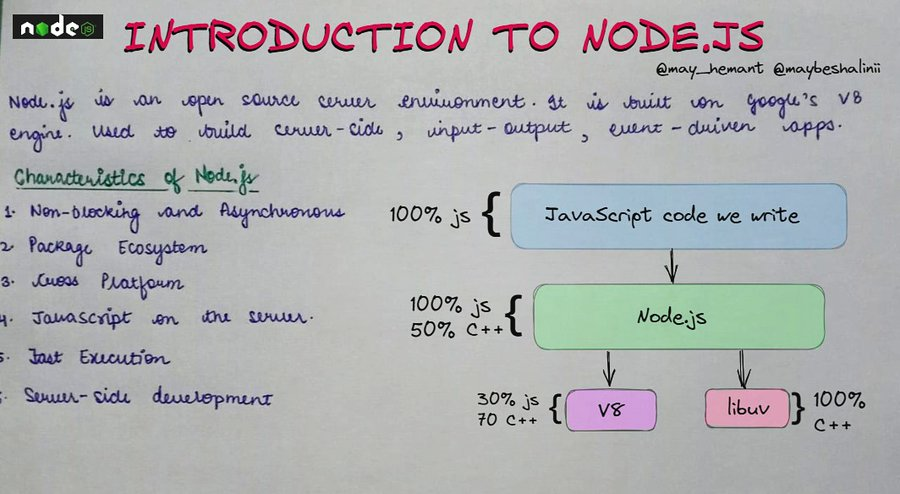 node JS
INTRODUCTION TO NODE.JS
@may_hemant @maybeshalinii
Node.js is an open source server environment. It is built on Google's V8
engine. Used to build server-side, input-output, event-driven apps.
Characteristics of Node.js
1. Non-blocking and Asynchronous
2. Package Ecosystem
3. Cross Platform
4. JavaScript on the server.
5. Fast Execution
Server-side development
100% js
JavaScript code we write
100% js
50% C++
Node.js
30% js
70 C++
V8
libuv
100%
C++